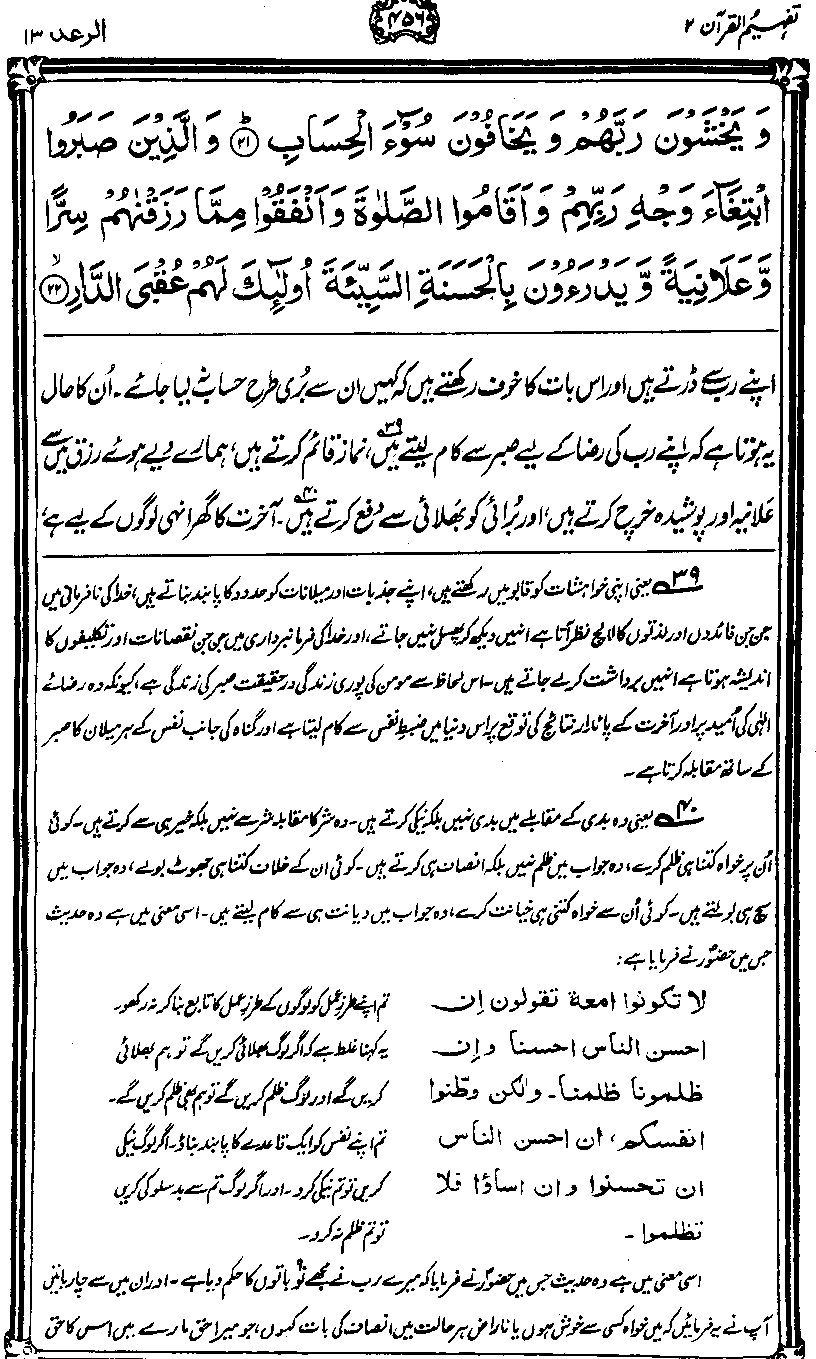 تفہیم القرآن ۲
۴۵۶
الرعد ۱۳
وَيَخْشَوْنَ رَبَّهُمْ وَيَخَافُوْنَ سُوْٓءَ الْحِسَابِ ﴿۲۱﴾ وَالَّذِيْنَ صَبَرُوا
ابْتِغَآءَ وَجْهِ رَبِّهِمْ وَاَقَامُوا الصَّلٰوةَ وَاَنْفَقُوْا مِمَّا رَزَقْنٰهُمْ سِرًّا
وَّعَلَانِيَةً وَّيَدْرَءُوْنَ بِالْحَسَنَةِ السَّيِّئَةَ اُولٰٓئِكَ لَهُمْ عُقْبَى الدَّارِ ﴿۲۲﴾
اپنے رب سے ڈرتے ہیں اور اس بات کا خوف رکھتے ہیں کہ کہیں ان سے بُری طرح حساب نہ لیا جائے۔ اُن کا حال
یہ ہوتا ہے کہ اپنے رب کی رضا کے لیے صبر سے کام لیتے ہیں۳۹، نماز قائم کرتے ہیں، ہمارے دیے ہوئے رزق میں سے
علانیہ اور پوشیدہ خرچ کرتے ہیں، اور بُرائی کو بھلائی سے دفع کرتے ہیں۴۰۔ آخرت کا گھر انہی لوگوں کے لیے ہے،
۳۹ یعنی اپنی خواہشات کو قابو میں رکھتے ہیں، اپنے جذبات اور میلانات کو حدود کا پابند بناتے ہیں، خدا کی نافرمانی میں
جن جن فائدوں اور لذتوں کا لالچ نظر آتا ہے انہیں دیکھ کر پھسل نہیں جاتے، اور خدا کی فرمانبرداری میں جن جن نقصانات اور تکلیفوں کا
اندیشہ ہوتا ہے انہیں برداشت کرلے جاتے ہیں۔ اس لحاظ سے مومن کی پوری زندگی درحقیقت صبر کی زندگی ہے، کیونکہ وہ رضائے
الٰہی کی اُمید پر اور آخرت کے پائدار نتائج کی توقع پر اس دنیا میں ضبطِ نفس سے کام لیتا ہے اور گناہ کی جانب نفس کے ہر میلان کا صبر
کے ساتھ مقابلہ کرتا ہے۔
۴۰ یعنی وہ بدی کے مقابلے میں بدی نہیں بلکہ نیکی کرتے ہیں۔ وہ شر کا مقابلہ شر سے نہیں بلکہ خیر ہی سے کرتے ہیں۔ کوئی
اُن پر خواہ کتنا ہی ظلم کرے، وہ جواب میں ظلم نہیں بلکہ انصاف ہی کرتے ہیں۔ کوئی ان کے خلاف کتنا ہی جھوٹ بولے، وہ جواب میں
سچ ہی بولتے ہیں۔ کوئی اُن سے خواہ کتنی ہی خیانت کرے، وہ جواب میں دیانت ہی سے کام لیتے ہیں۔ اسی معنی میں ہے وہ حدیث
جس میں حضورؐ نے فرمایا ہے:
لا تکونوا امعة تقولون ان
احسن الناس احسنا وان
ظلمونا ظلمنا۔ ولٰکن وطّنوا
انفسکم، ان احسن الناس
ان تحسنوا وان اساؤا فلا
تظلموا۔
تم اپنے طرزِ عمل کو لوگوں کے طرزِ عمل کا تابع بنا کر نہ رکھو۔
یہ کہنا غلط ہے کہ اگر لوگ بھلائی کریں گے تو ہم بھلائی
کریں گے اور لوگ ظلم کریں گے تو ہم بھی ظلم کریں گے۔
تم اپنے نفس کو ایک قاعدے کا پابند بناؤ۔ اگر لوگ نیکی
کریں تو تم نیکی کرو۔ اور اگر لوگ تم سے بدسلوکی کریں
تو تم ظلم نہ کرو۔
اسی معنی میں ہے وہ حدیث جس میں حضورؐ نے فرمایا کہ میرے رب نے مجھے نو باتوں کا حکم دیا ہے۔ اور ان میں سے چار باتیں
آپ نے یہ فرمائیں کہ میں خواہ کسی سے خوش ہوں یا ناراض ہر حالت میں انصاف کی بات کہوں، جو میرا حق مارے میں اس کا حق